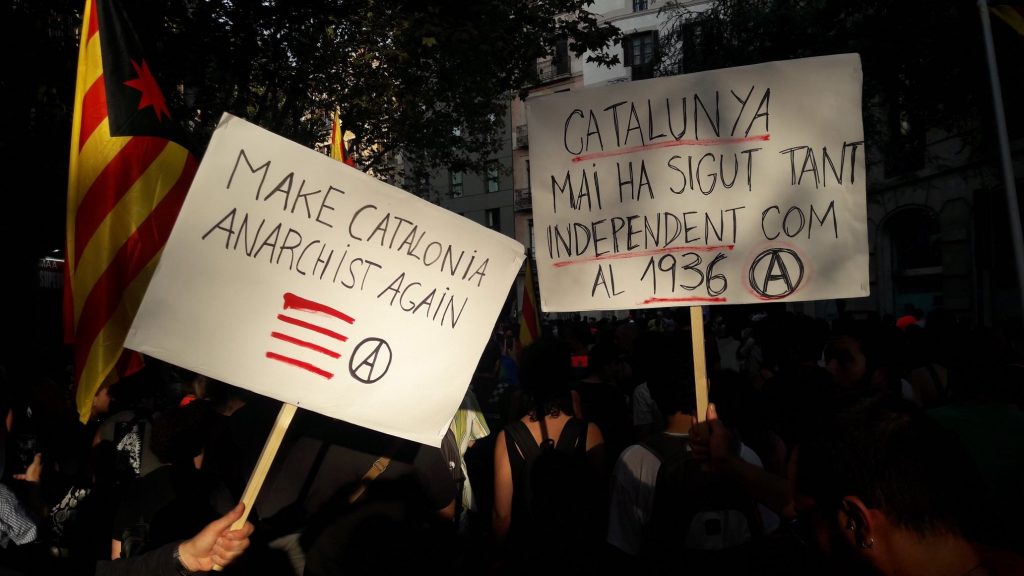 MAKE CATALONIA
ANARCHIST AGAIN
A
CATALUNYA
MAI HA SIGUT TANT
INDEPENDENT COM
AL 1936 A